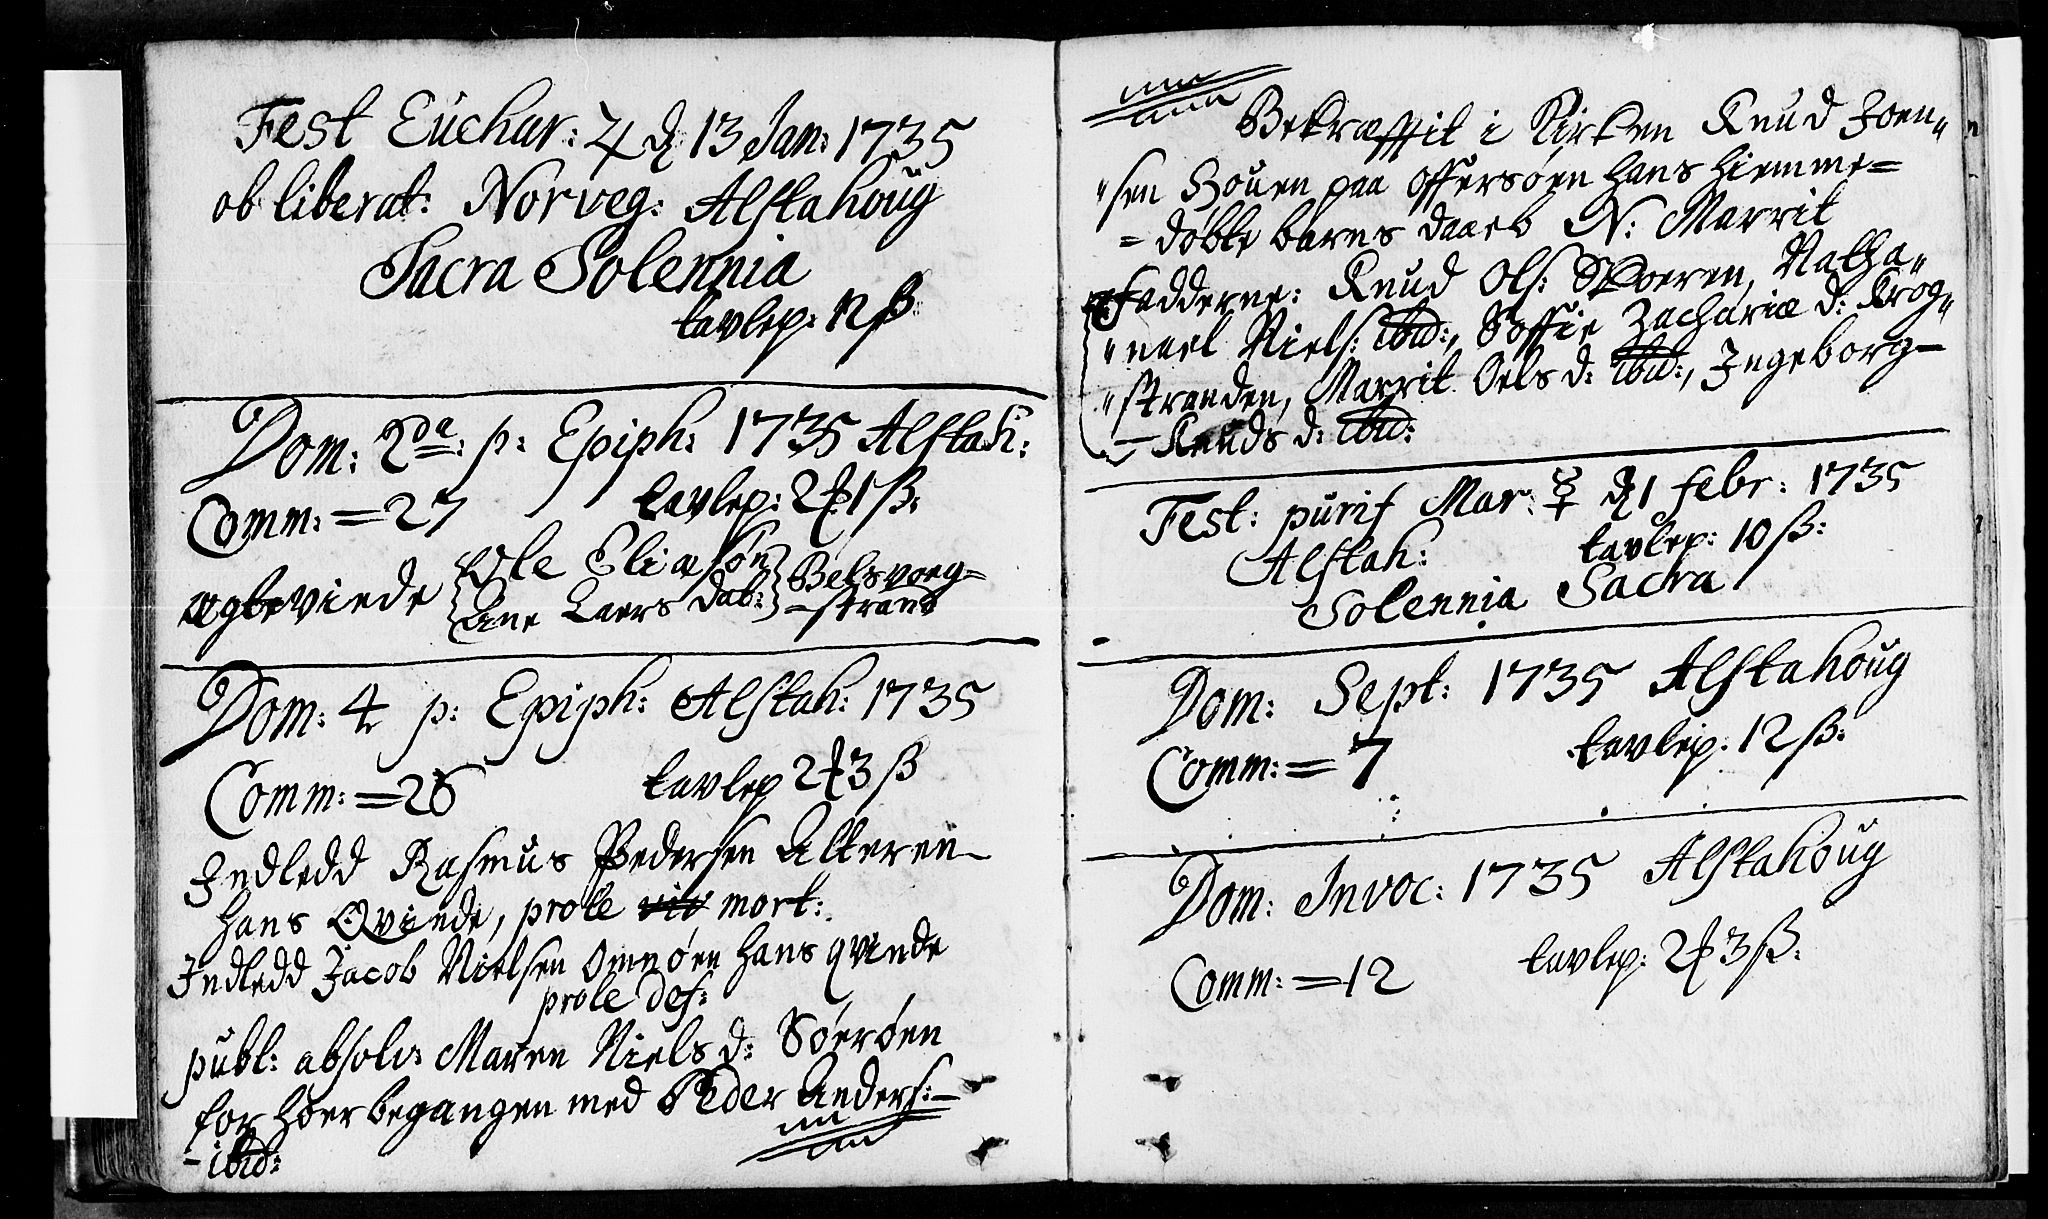 Fest Euchar: ♃ d. 13 Jan: 1735
ob liberat: Norveg: Alstahoug
Sacra Solennia
tavlep: 12 ß.
Dom: 2da: p: Epiph: 1735 Alstah:
Comm: =27 tavlep: 2 1 ß.
ægteviede Ole Eliæsøn Belsvog=
Ane Laers dat: =strand
Dom: 4 p: Epiph: Alstah: 1735
Comm: =26 tavlep 2 3 ß
Indledd Rasmus Pedersen Alteren
hans Qvinde, prole viv mort:
Indledd Jacob Nielsen Omnøen hans qvinde
prole def:
publ: absolv: Maren Niels d: Søerøen
for hoer begangen med Peder Anders:
ibid:
Bekræfftit i Kirken Knud Joen"
"sen Houen paa Offersøen hans hiemme=
= døbte barns daaeb N: Marrit
Fadderne: Knud Ols: Skoeren, Natha"
"nael Niels: ibid:, Soffie Zachariæ d: Krog"
"stranden, Marrit Oels d: ibid:, Ingeborg
Knuds d: ibid:
Fest: purif Mar: ☿ d. 1 Febr: 1735
Alstah: tavlep: 10 ß:
Solennia Sacra
Dom: Sept: 1735 Alstahoug
Comm: =7 tavlep: 12 ß:
Dom: Invoc: 1735 Alstahoug
Comm: =12 tavlep: 2 3 ß: